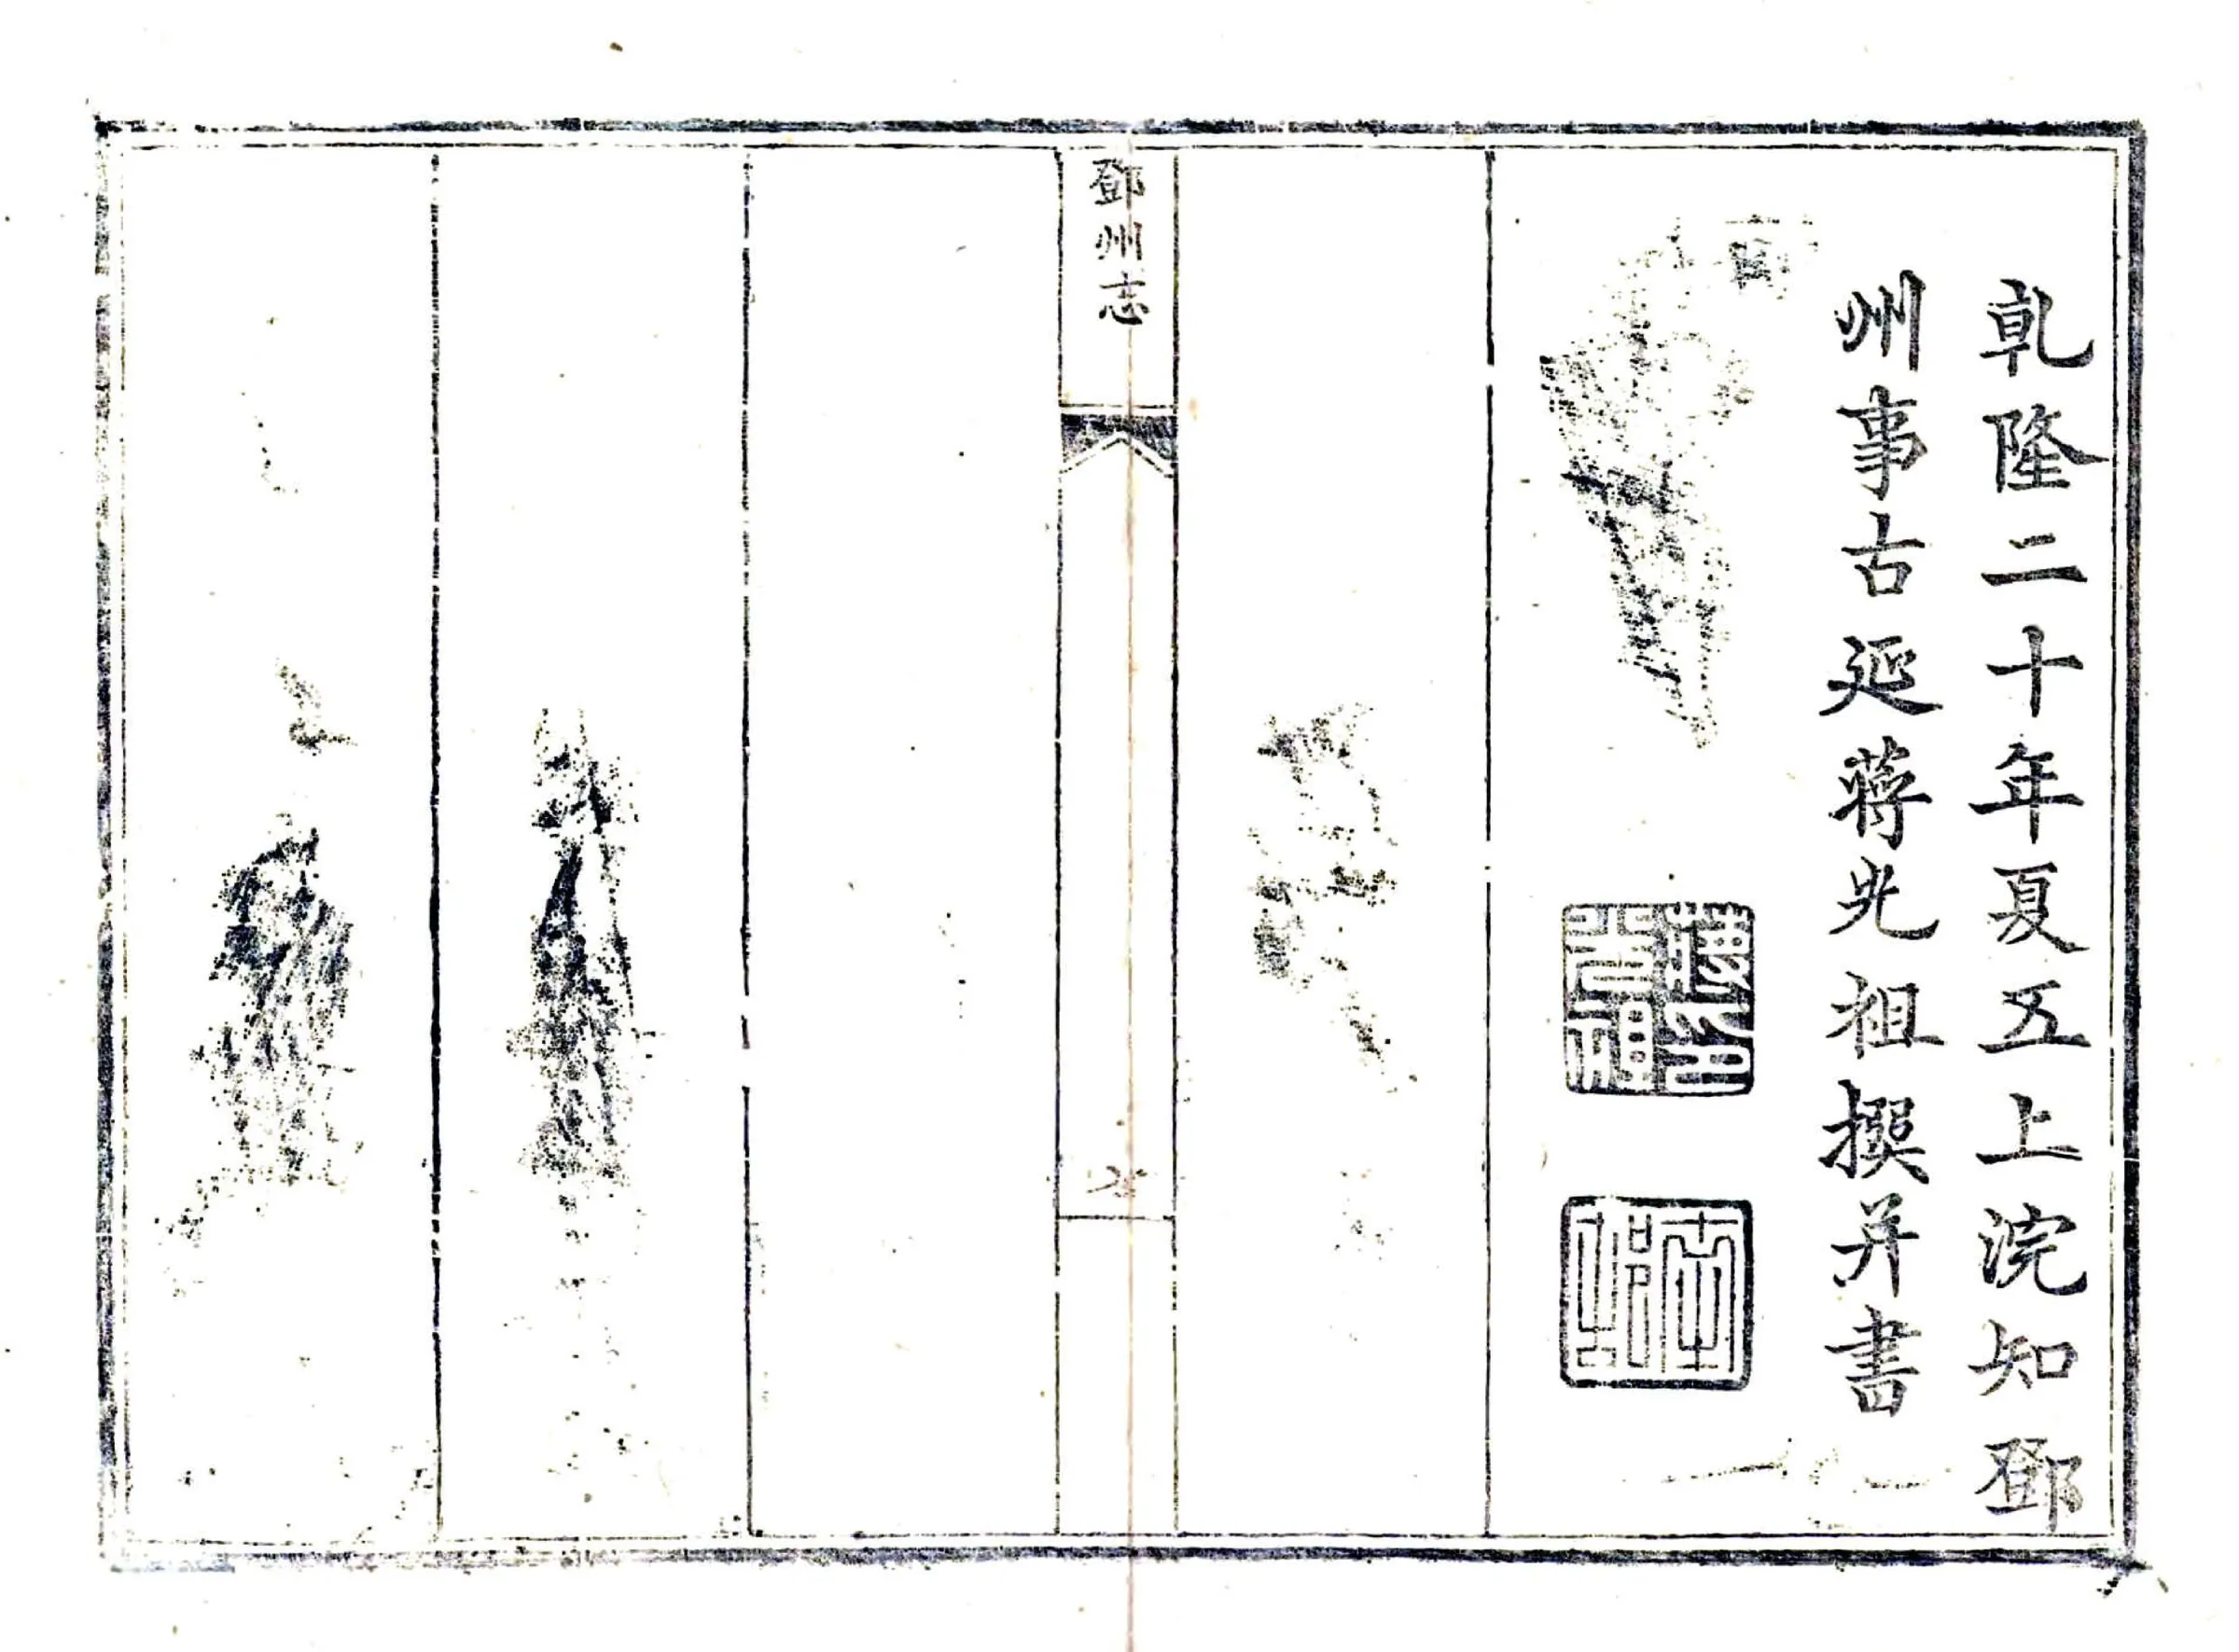 乾隆二十年夏五上浣知鄧
州事古延蔣光祖撰并書
蔣光祖印
鄧州志